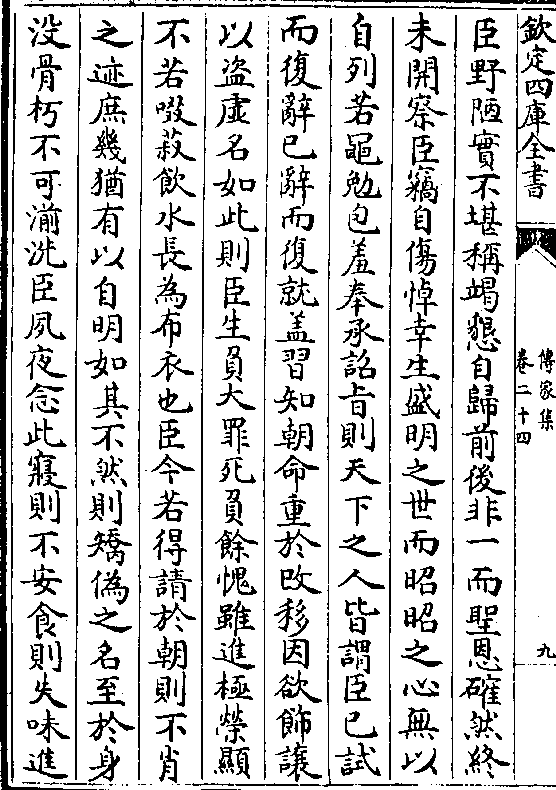 欽定四庫全書
傳家集
卷二十四
九
臣野陋實不堪稱竭懇自歸前後非一而聖恩確然終
未開察臣竊自傷悼幸生盛明之世而昭昭之心無以
自列若黽勉包羞奉承詔旨則天下之人皆謂臣已試
而復辭已辭而復就盖習知朝命重於改移因欲飾讓
以盜虚名如此則臣生負大罪死負餘愧雖進極榮顯
不若啜菽飲水長為布衣也臣今若得請於朝則不肖
之迹庶幾猶有以自明如其不然則矯偽之名至於身
没骨朽不可湔洗臣夙夜念此寢則不安食則失味進